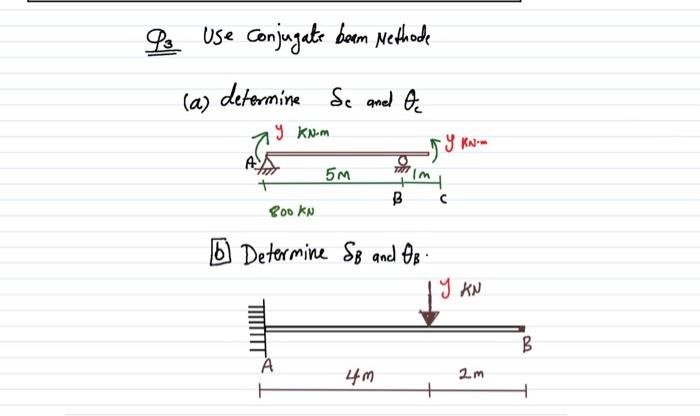 Q3 Use Conjugate beam Methode
(a) determine Sc and θc
y KN.m
y KN-m
A
5m
1m
B
C
800 KN
b) Determine SB and θB.
y KN
B
A
4m
2m